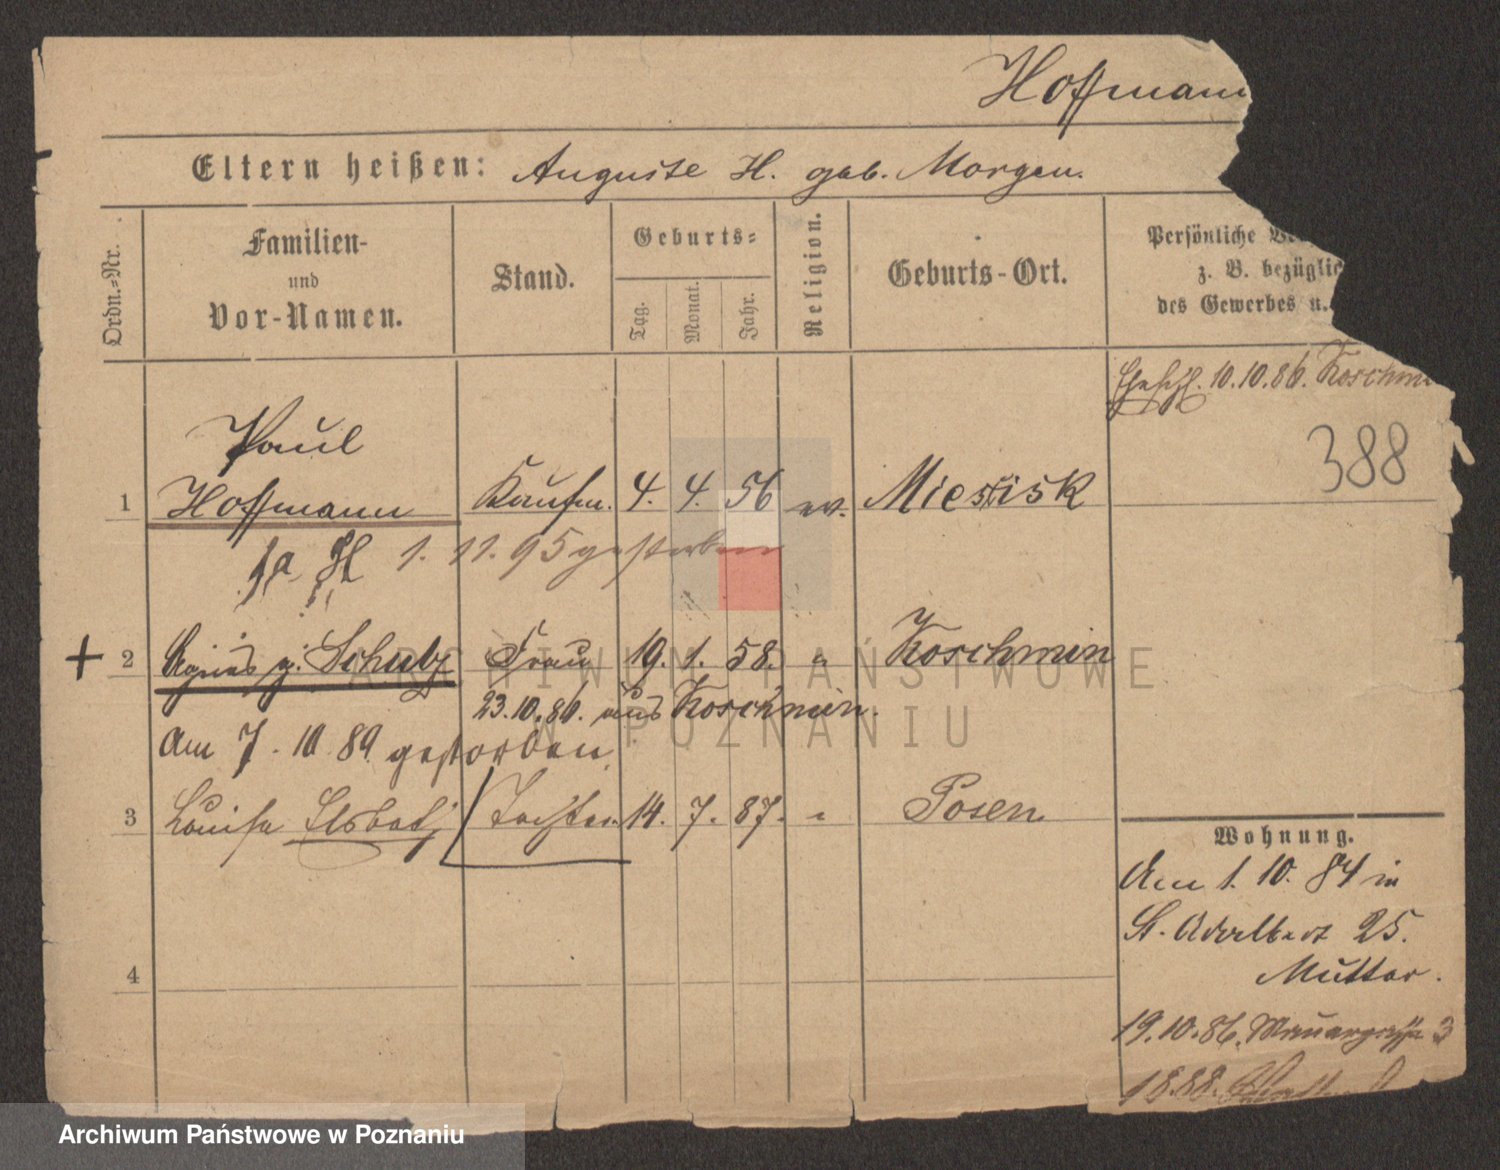 Hoffmann
Eltern heißen: Auguste H. geb. Morgen.
Ordn.-Nr.
Familien-
und
Vor-Namen.
Stand.
Geburts-
Tag.
Monat.
Jahr.
Religion.
Geburts-Ort.
Persönliche
z. B. bezüglic
des Gewerbes u.
10.10.86. Koschmin
388
Paul
1 Hoffmann Kaufm. 4. 4. 56 ev. Miestisk
1. 11. 95 gestorben
+ 2 Agnes g. Schulz Frau 19. 1. 58. " Koschmin
23.10.86. aus Koschmin.
Am 7. 10 89 gestorben.
3 Louise Elsbeth Tochter 14. 7. 87. " Posen
4
Wohnung.
Am 1. 10. 84 in
St. Adalbert 25.
Mutter.
19.10.86. Mauergasse 3
1888.
ARCHIWUM PAŃSTWOWE
W POZNANIU
Archiwum Państwowe w Poznaniu